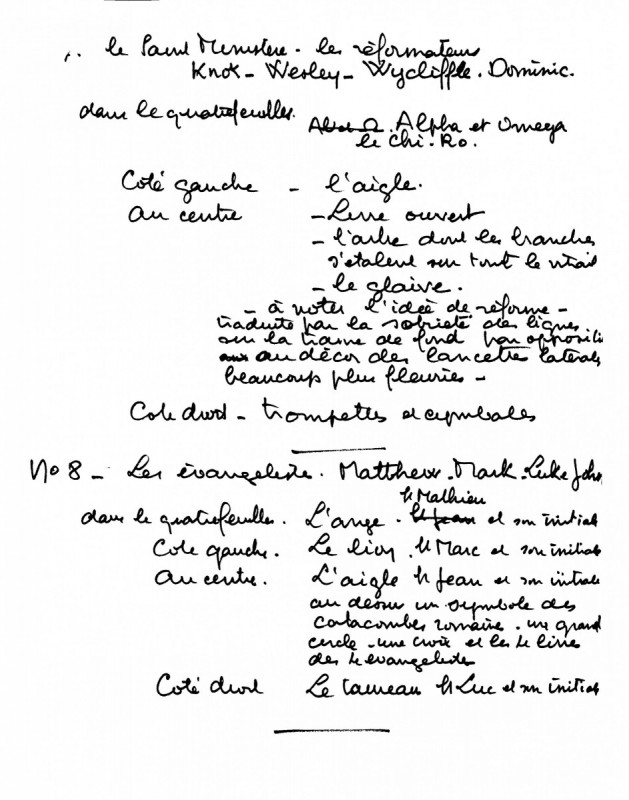 . le Saint Ministere - les réformateurs
Knox - Wesley - Wycliffe. Dominic.
dans le quatrefeuilles. Alpha et Omega
le Chi. Ro.
Coté gauche - l'aigle.
au centre - Livre ouvert
- l'arbre dont les branches
s'etalent sur tout le vitrail
- le glaive.
- à noter l'idée de réforme -
traduite par la sobrieté des lignes
sur la trame de fond par oppositi
au décor des lancettes laterals
beaucoup plus fleuries -
Cote droit - trompettes et cymbales
No 8 - Les évangeliste. Matthew. Mark. Luke John
St Mathieu
dans le quatrefeuilles. L'ange. St Jean et son initial
Cote gauche. Le lion St Marc et son initial
au centre. L'aigle St Jean et son initiale
au dessus un symbole des
catacombes romaine. un grand
cercle - une croix et les 4 livres
des 4 evangelistes
Coté droit Le taureau St Luc et son initial